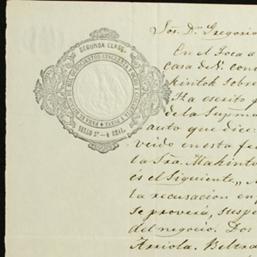 SEGUNDA CLASE.
SELLO 2º - 4 REAL.
Sor. Dn. Gregorio
En el Foca a
casa de N. cont
kintok sobre
Ha escrito p
de la Suprem
auto que dice:
veido en esta fe
la Sra. Mahintos
es el siguiente, A
la recusacion en
se proverá, susp
del negocio. Dos
Arriola. Beltra